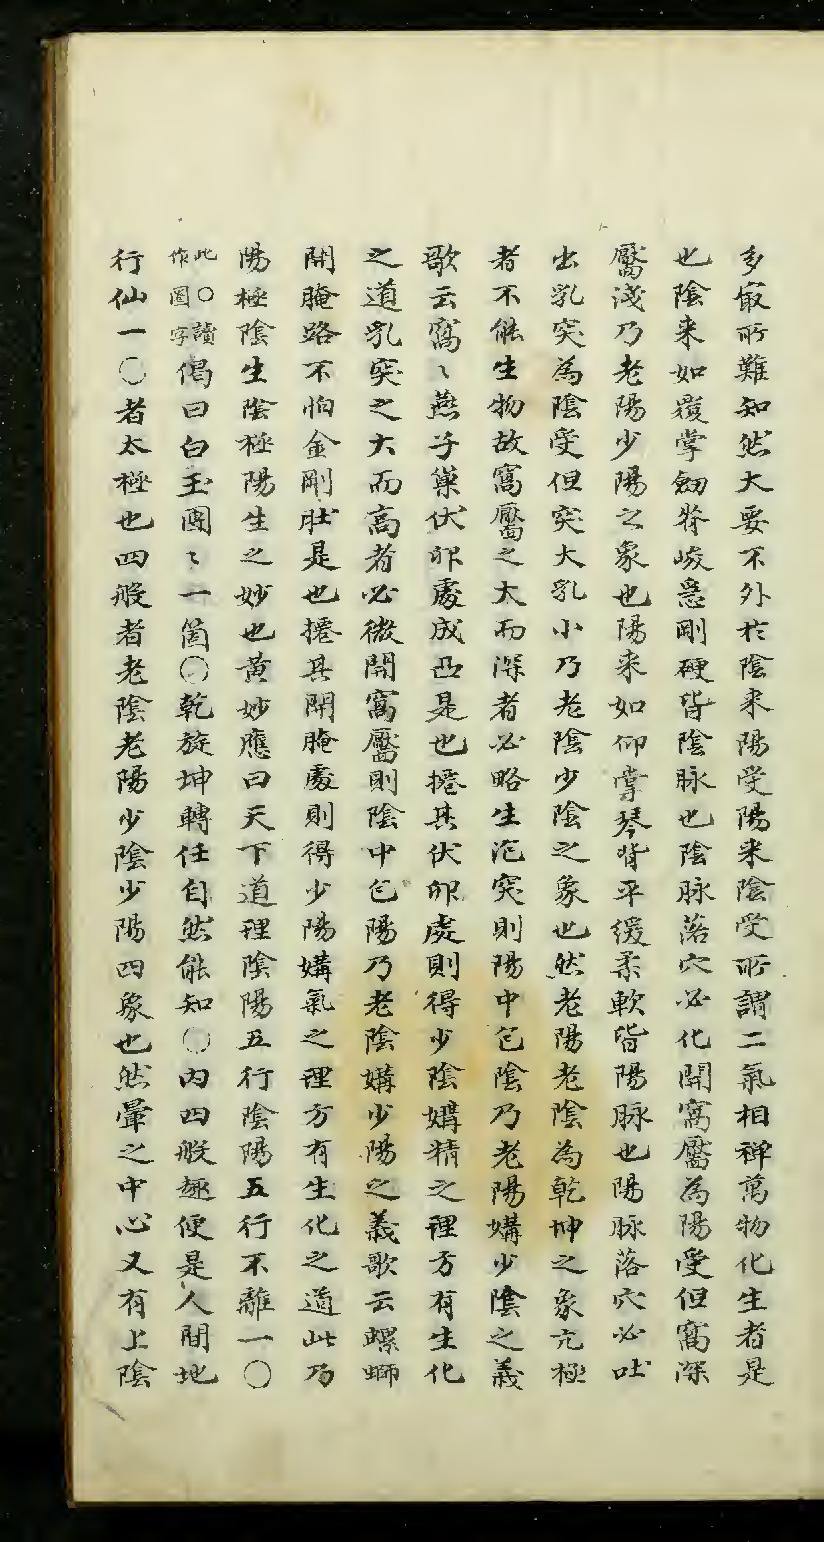 多寂所難知然大要不外於陰来陽受陽来陰受所謂二氣相禪萬物化生者是
也陰来如覆掌劒脊峻急剛硬皆陰脉也陰脉落穴必化開窩靨為陽受但窩深
靨淺乃老陽少陽之象也陽来如仰掌琴背平緩柔軟皆陽脉也陽脉落穴必吐
出乳突為陰受但突大乳小乃老陰少陰之象也然老陽老陰為乾坤之象亢極
者不能生物故窩靨之大而深者必略生泡突則陽中包陰乃老陽媾少陰之義
歌云窩〻燕子巢伏卵處成凸是也捲其伏卵處則得少陰媾精之理方有生化
之道乳突之大而高者必微開窩靨則陰中包陽乃老陰媾少陽之義歌云螺螄
開腌路不怕金剛肚是也捲其開腌處則得少陽媾氣之理方有生化之道此乃
陽極陰生陰極陽生之妙也黄妙應曰天下道理陰陽五行陰陽五行不離一〇
此〇讀作圈字偈曰白玉團〻一箇〇乾旋坤轉任自然能知〇内四般趣便是人間地
行仙一〇者太極也四般者老陰老陽少陰少陽四象也然暈之中心又有上陰